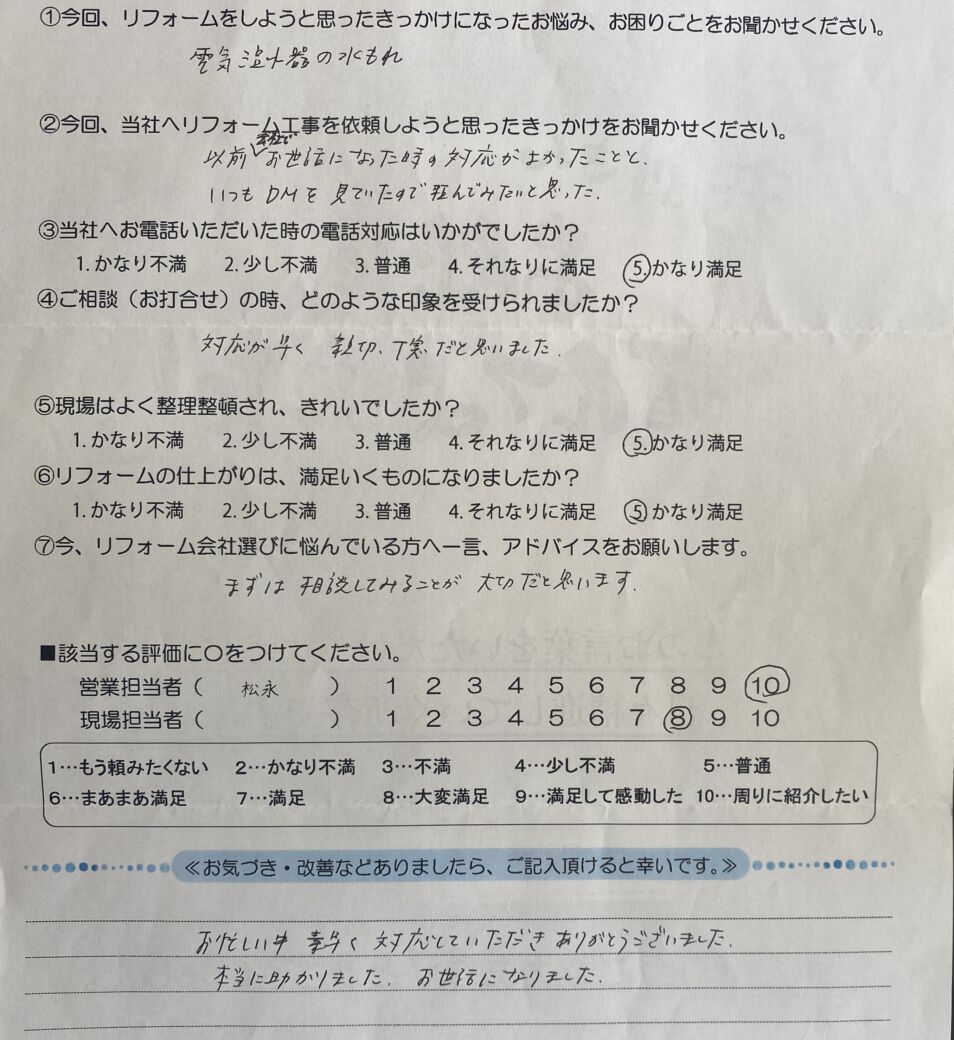 ①今回、リフォームをしようと思ったきっかけになったお悩み、お困りごとをお聞かせください。
電気温水器の水もれ
②今回、当社へリフォーム工事を依頼しようと思ったきっかけをお聞かせください。
以前 お世話になった時の対応がよかったことと、
いつもDMを見ていたので頼んでみたいと思った.
③当社へお電話いただいた時の電話対応はいかがでしたか？
1. かなり不満 2. 少し不満 3. 普通 4. それなりに満足 5. かなり満足
④ご相談（お打合せ）の時、どのような印象を受けられましたか？
対応が早く 親切、丁寧だと思いました.
⑤現場はよく整理整頓され、きれいでしたか？
1. かなり不満 2. 少し不満 3. 普通 4. それなりに満足 5. かなり満足
⑥リフォームの仕上がりは、満足いくものになりましたか？
1. かなり不満 2. 少し不満 3. 普通 4. それなりに満足 5 かなり満足
⑦今、リフォーム会社選びに悩んでいる方へ一言、アドバイスをお願いします。
まずは 相談してみることが 大切だと思います.
■該当する評価に〇をつけてください。
営業担当者（ 松永 ） 1 2 3 4 5 6 7 8 9 10
現場担当者（ ） 1 2 3 4 5 6 7 8 9 10
1…もう頼みたくない 2…かなり不満 3…不満 4…少し不満 5…普通
6…まあまあ満足 7…満足 8…大変満足 9…満足して感動した 10…周りに紹介したい
≪お気づき・改善などありましたら、ご記入頂けると幸いです。≫
お忙しい中 素早く 対応していただき ありがとうございました.
本当に助かりました. お世話になりました.